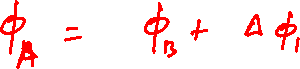 ϕ_A = ϕ_B + Δ ϕ_1